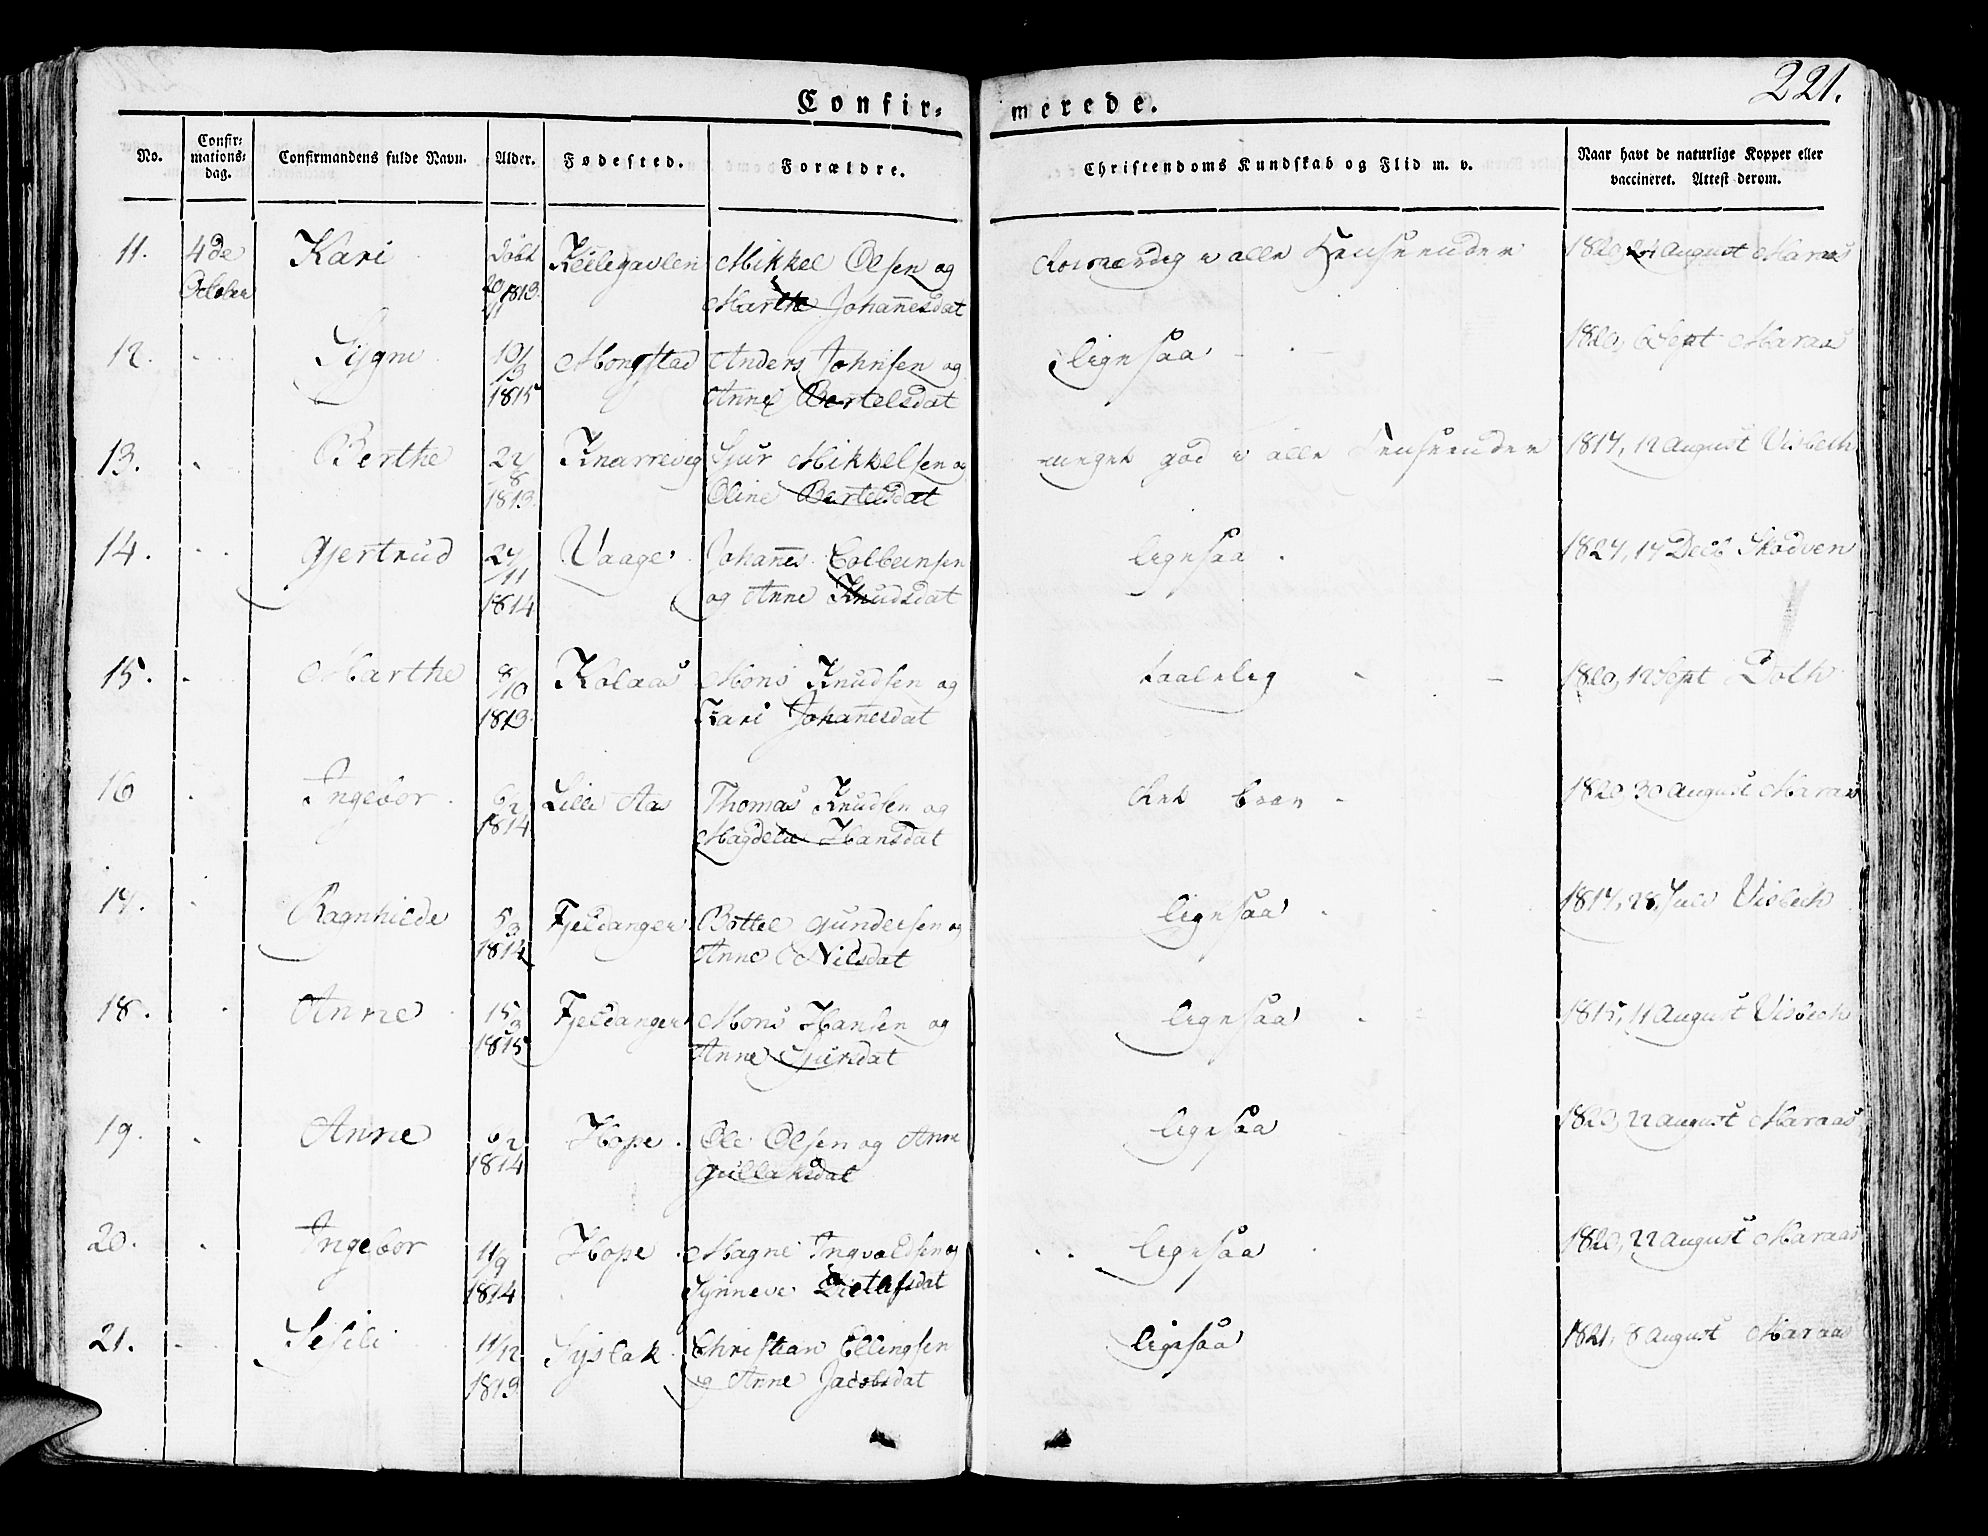 221.
Confirmerede.
No. Confir-mations-dag. Confirmandens fulde Navn. Alder. Fødested. Forældre. Christendoms Kundskab og Flid m. v. Naar havt de naturlige Kopper eller vaccineret. Attest derom.
11. 4de Kari Døbt Mikkel Olsen og i alle Henseender 1820, August Maraas
October 1813. Marthe Johannesdat
12. Signi 10/3 Mongstad Anders Johnsen og ligesaa 1820, 6 Sept Maraas
1815 Anne Bertelsdat
13. Berthe 22/8 Knarrevig Sjur Mikkelsen og meget god i alle Henseender 1817, 12 August Visbech
1813. Oline Bertelsdat
14. Gjertrud 27/11 Vaage Johannes Colbeinsen ligesaa 1827, 17 Decb Skodven
1814 og Anne Knudsdat
15. Marthe 8/10 Kolaas Mons Knudsen og taalelig 1820, 12 Sept Both
1813. Kari Johannesdat
16 Ingebor 6/2 Lille Aas Thomas Knudsen og brav 1820, 30 August Maraas
1814 Magdela Hansdat
17. Ragnhilde 5/3 Fjeldanger Bottel Gundersen og ligesaa 1817, 28 Juli Visbech
1814 Anne Nilsdat
18. Anne 15/3 Fjeldanger Mons Hansen og ligesaa 1815, 11 August Visbech
1815 Anne Sjursdat
19. Anne 6/2 Hope Ole Olsen og Anne ligesaa 1820, 22 August Maraas
1814 Gullaksdat
20. Ingebor 11/9 Hope Magne Ingvaldsen og ligesaa 1820, 22 August Maraas
1814 Synneve Ditlefsdat
21. Sesili 11/12 Syslak Christian Ellingsen ligesaa 1821, 8 August Maraas
1813 og Anne Jacobsdat